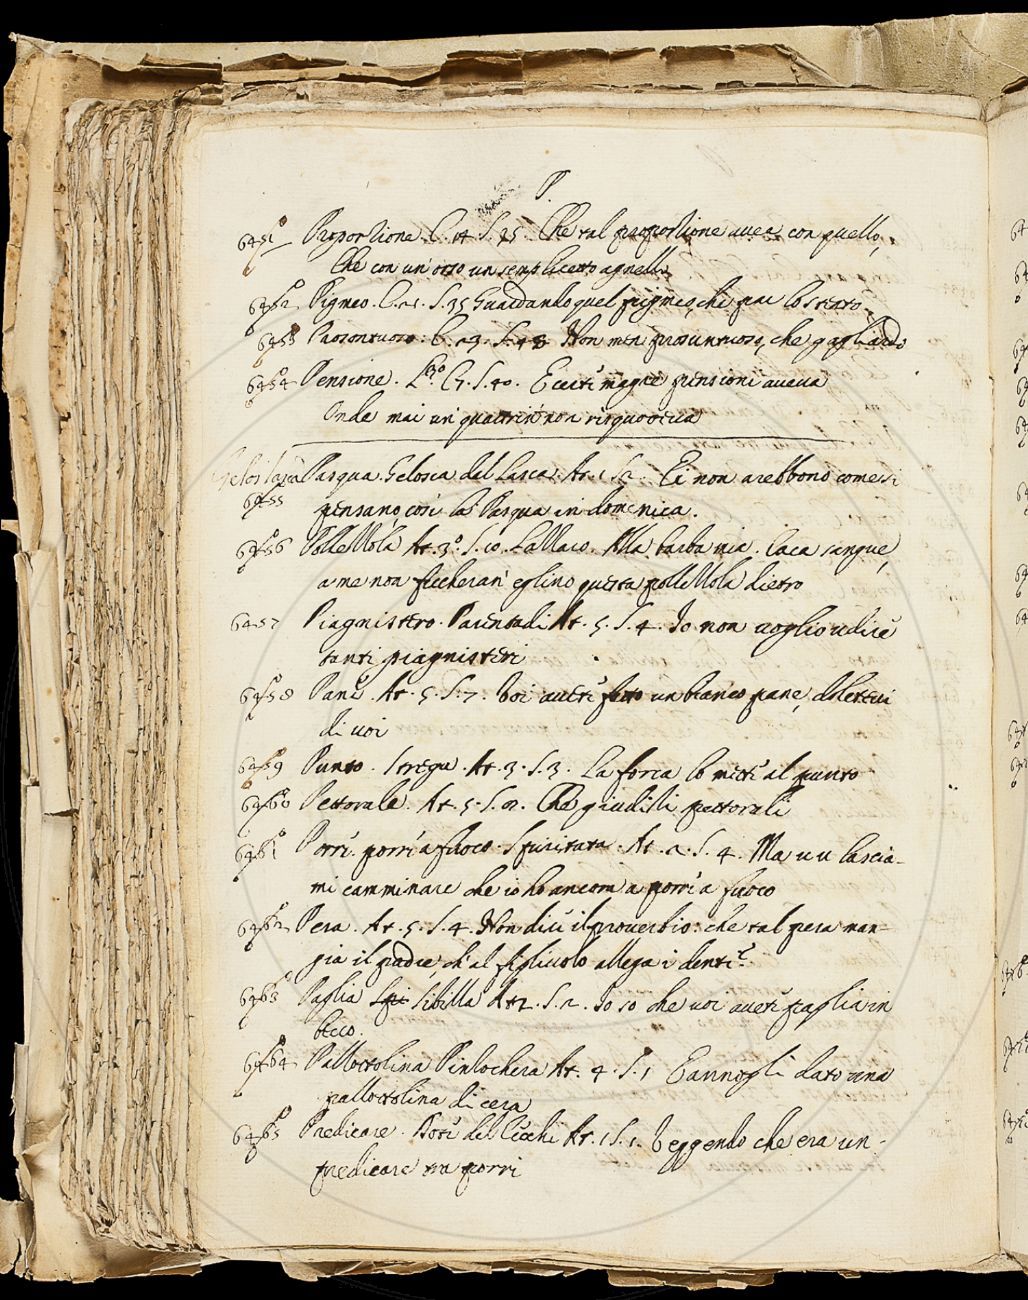 P.
6451 Proportione C. 14 S. 25. Che tal proportione avea con quello,
Che con un' orso un semplicetto agnello
6452 Pigmeo. C. 21. S. 35 Guardando quel pigmeo, che par lo stento
6453 Prosontuoso. C. 23. S. 48 Non men prosuntuoso, che gagliardo
6454 Pensione. C. 7. S. 40. E certe magre pensioni aveva
Onde mai un' quattrin' non risquoteva
6455 Pasqua. Gelosia del Lasca. At. 1 S. 2. Ei non arebbono come si
pensano, così la Pasqua in domenica.
6456 At. 3.º S. 10. Lazzaro. Alla barba mia. Caca sangue,
a me non ficcheran' eglino questa dietro
6457 Piagnistero. Parentadi At. 5. S. 4. Io non voglio udire
tanti piagnisteri
6458 Pane. At. 5. S. 7. Voi avete fatto un bianco pane, doletevi
di voi
6459 Punto. Strega. At. 3. S. 3. La forca lo metti al punto
6460 Pettorale. At. 5. S. 2. Che giuditii pettorali
6461 Porri. porri a fuoco. Spiritata. At. 2. S. 4. Ma vu lascia-
mi camminare che io ho ancora a porr' a fuoco
6462 Pera. At. 5. S. 4. Non dice il proverbio: che tal pera man-
gia il padre ch' al figliuolo allega i denti?
6463 Paglia Sibilla At 2. S. 2. Io so che voi avete paglia in
becco.
6464 Pallottolina Pinzochera At. 4. S. 1 E annogli dato una
pallottolina di cera
6465 Predicare. Dote del Cecchi At. 1 S. 1. Veggendo che era un-
predicare tra porri